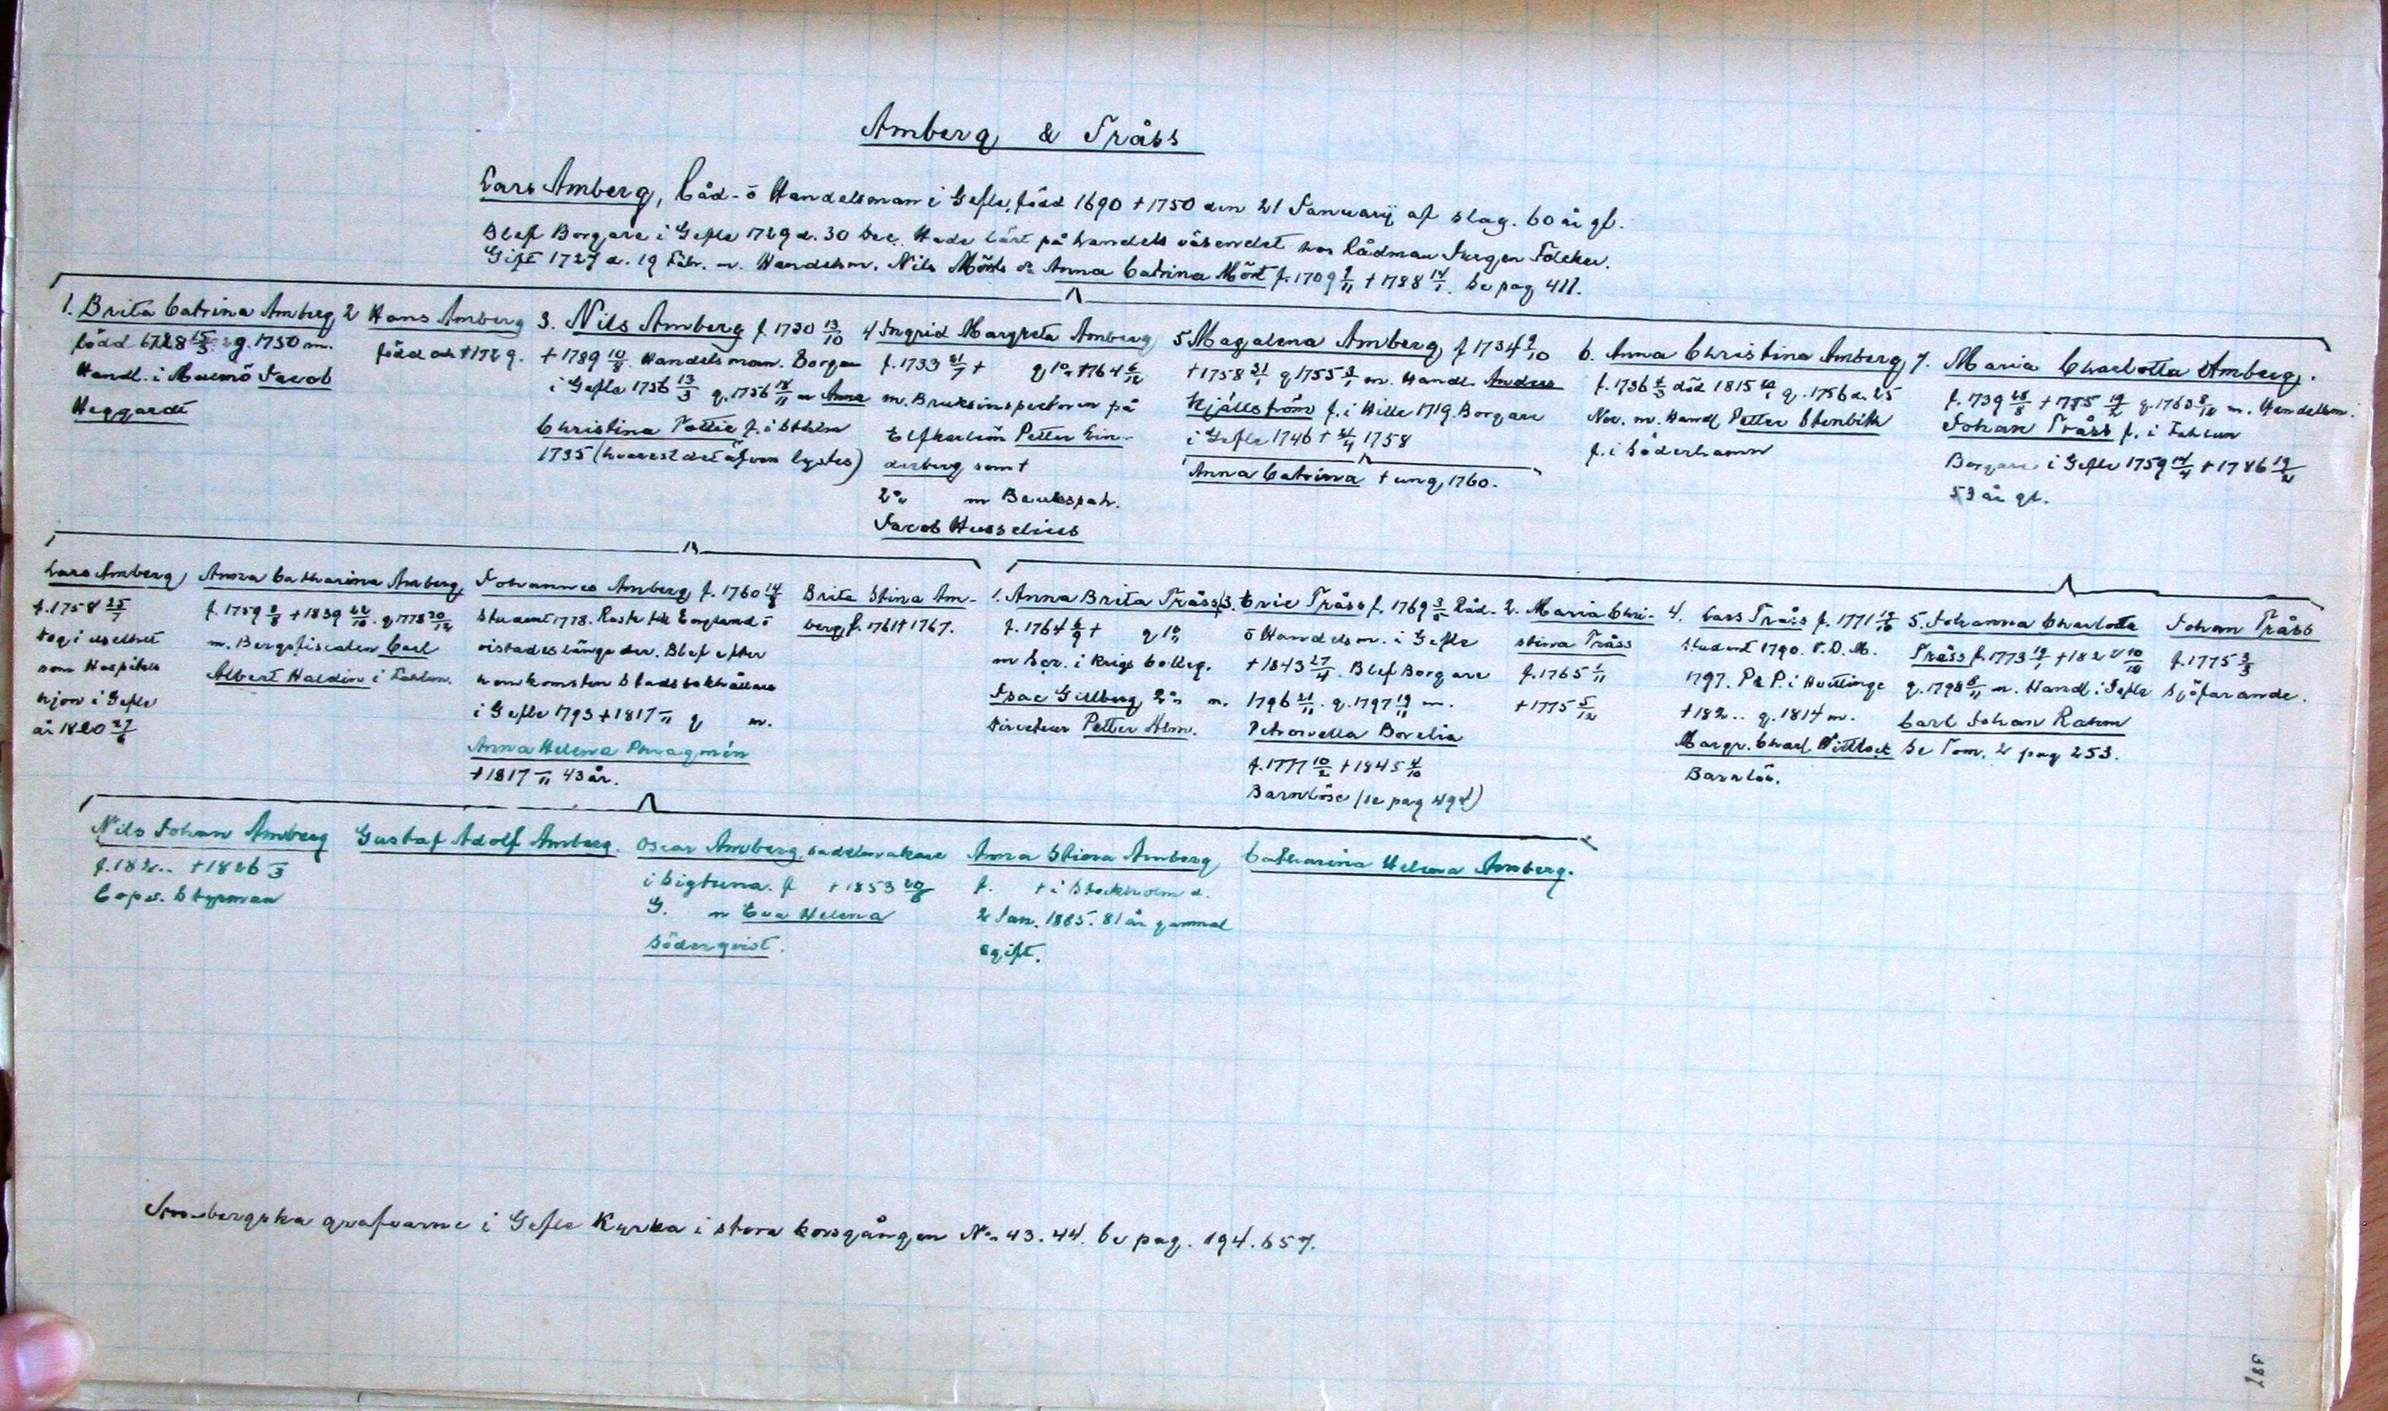 Amberg & Tråss
Lars Amberg, Råd- ō Handelsman i Gefle, född 1690 † 1750 den 21 Januarij af slag. 60 år gl.
Blef Borgare i Gefle 1729 d. 30 Dec. Hade lärt på handels väsendet hos Rådman Jurgen Fölcker.
Gift 1727 d. 19 Febr. m. Handelsm. Nils Mörts dr Anna Catrina Mört f. 1709 9/11 † 1788 14/1. Se pag 411.
1. Brita Catrina Amberg
född 1728 15/3 g. 1750 m.
Handl. i Malmö Jacob
Heggardt
2 Hans Amberg
född och † 1729.
3. Nils Amberg f. 1730 13/10
† 1789 10/8. Handelsman. Borgare
i Gefle 1756 13/3 g. 1756 18/11 m Anna
Christina Tottie f. i Sthlm
1735 (hvarest det äfven lystes)
4 Ingrid Margreta Amberg
f. 1733 21/7 † g 1o 1764 6/12
m. Bruksinspectoren på
Elfkarleön Petter Lin-
derberg samt
2o m Brukspatr.
Jacob Husselius
5 Magdalena Amberg f 1734 2/10
† 1758 31/1 g 1755 3/1 m. Handl. Anders
Kjällström f. i Hille 1719. Borgare
i Gefle 1746 † 21/4 1758
Anna Catrina † ung 1760.
6. Anna Christina Amberg
f. 1736 4/3 död 1815 g. 1756 d. 25
Nov. m. Handl Petter Stenbith
f. i Söderhamn
7. Maria Charlotta Amberg.
f. 1739 28/8 † 1775 19/2 g. 1763 8/12 m. Handelsm.
Johan Tråss f. i Fahlun
Borgare i Gefle 1759 14/4 † 1786 19/2
53 år gl.
Lars Amberg
f. 1758 25/7
tog i uselhet
som Hospitals
hjon i Gefle
år 1820 27/6
Anna Catharina Amberg
f. 1759 8/8 † 1839 22/10. g 1778 30/12
m. Bergsfiscalen Carl
Albert Haldin i Fahlun.
Johannes Amberg f. 1760 14/8
Student 1778. Reste till England ō
vistades länge der. Blef efter
hemkomsten Stadsbokhållare
i Gefle 1793 † 1817 /11 g m.
Anna Helena Phragmén
† 1817 /11 43 år.
Brita Stina Am-
berg f. 1761 † 1767.
1. Anna Brita Tråss
f. 1764 6/9 † g 1o
m Scr. i Krigs Colleg.
Isac Gillberg 2o m.
Directeur Petter Alm.
3. Eric Tråss f. 1769 3/5 Råd-
ō Handelsm. i Gefle
† 1843 27/4. Blef Borgare
1796 21/11. g. 1797 19/11 m.
Petronella Borelia
f. 1777 10/2 † 1845 4/10
Barnlöse (se pag 492)
2. Maria Chri-
stina Tråss
f. 1765 1/11
† 1775 5/12
4. Lars Tråss f. 1771 19/10
Student 1790. V. D. M.
1797. Pr P. i Huttinge
† 182.. g. 1814 m.
Margr. Charl. Wittlock
Barnlös.
5. Johanna Charlotta
Tråss f. 1773 19/1 † 1822 10/10
g. 1798 8/11 m. Handl i Gefle
Carl Johan Rahm
Se Tom. 2 pag 253.
Johan Tråss
f. 1775 3/3
Sjöfarande.
Nils Johan Amberg
f. 182.. † 1826 /3
Copv. Styrman
Gustaf Adolf Amberg.
Oscar Amberg, Sadelmakare
i Sigtuna. f † 1853 20/8
G. m Eva Helena
Söderqvist.
Anna Stina Amberg
f. † i Stockholm d.
2 Jan. 1885. 81 år gammal
ogift.
Catharina Helena Amberg.
Ambergska grafvarne i Gefle Kyrka i stora korsgången No 43. 44. Se pag. 194. 657.
387